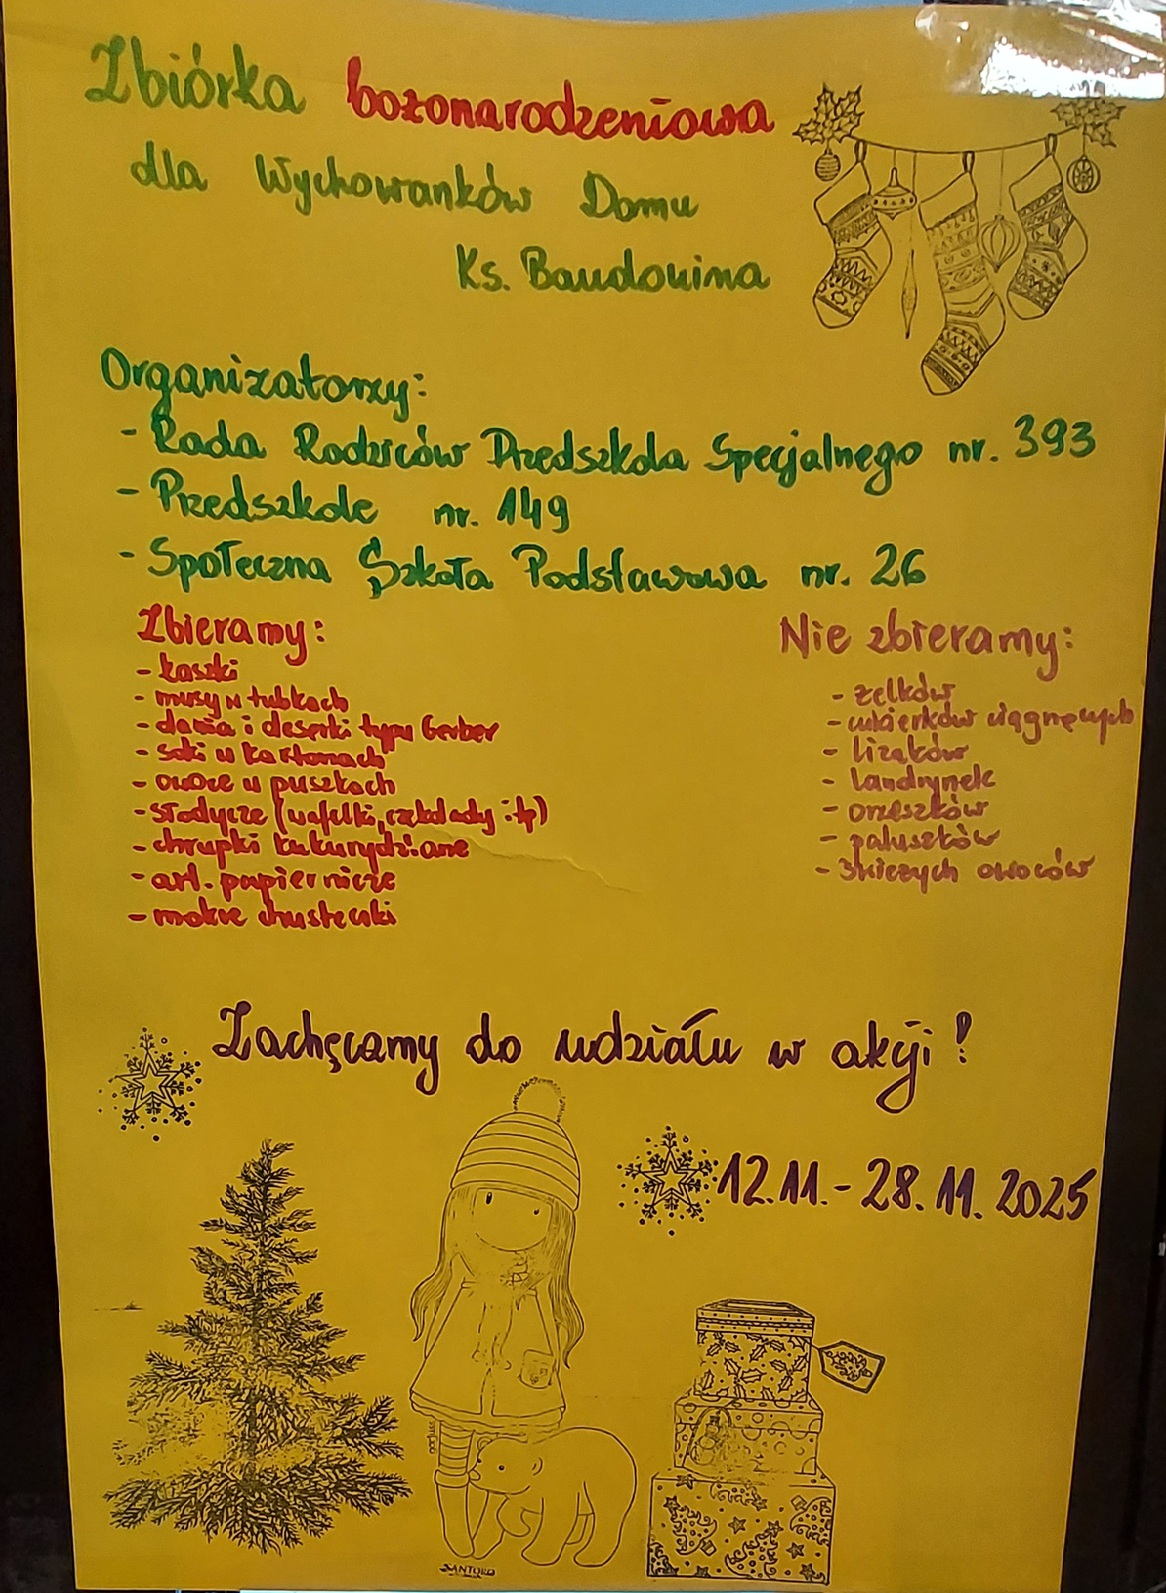 Zbiórka bożonarodzeniowa
dla Wychowanków Domu
Ks. Baudouina
Organizatorzy:
- Rada Rodziców Przedszkola Specjalnego nr. 393
- Przedszkole nr. 149
- Społeczna Szkoła Podstawowa nr. 26
Zbieramy:
- kaszki
- musy w tubkach
- dania i deserki typu Gerber
- soki w kartonach
- owoce w puszkach
- słodycze (wafelki, czekolady itp)
- chrupki kukurydziane
- art. papiernicze
- mokre chusteczki
Nie zbieramy:
- żelków
- cukierków ciągnących
- lizaków
- landrynek
- orzeszków
- paluszków
- świeżych owoców
Zachęcamy do udziału w akcji!
12.11. - 28.11. 2025
SANTORO